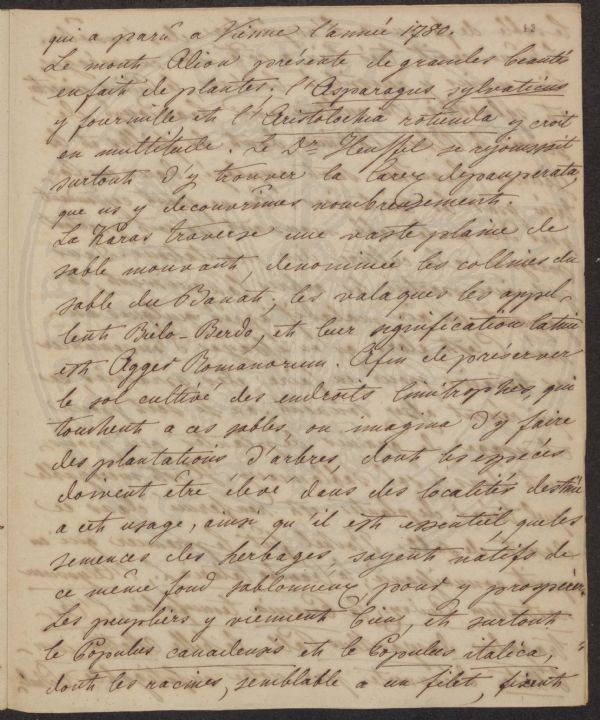 qui a parû a Vienne l'année 1780.
Le mont Alion présente de grandes beautés
en fait de plantes; l'Asparagus sylvaticus
y fourmille eth l'Aristolochia rotunda y croit
en multitude. Le Dr. Heuffel se rejouissait
surtouts d'y trouver la Carex depauperata,
que ns y decouvrîmes nombreusements.
La Karas traverse une vaste plaine de
sable mouvant, denommée les collines du
sable du Banath; les valaques les appel-
lenth Bielo-Berdo, eth leur signification latine
esth Agger Romanorum. Afin de préserver
le sol cultivé des endroits limitrophes, qui
touchenth a ces sables, on imagina d'y faire
des plantations d'arbres, donth les espèces
doivent être élevé dans des localités destiné
a ceth usage, ainsi qu'il esth essentiel que les
semences des herbages soyent natifs de
ce même fond sablonnéux pour y prospérer.
Les peupliers y viennenth bien, eth surtouth
le Populus canadensis eth le Populus italica,
donth les racines, semblable a un filet, fixenth